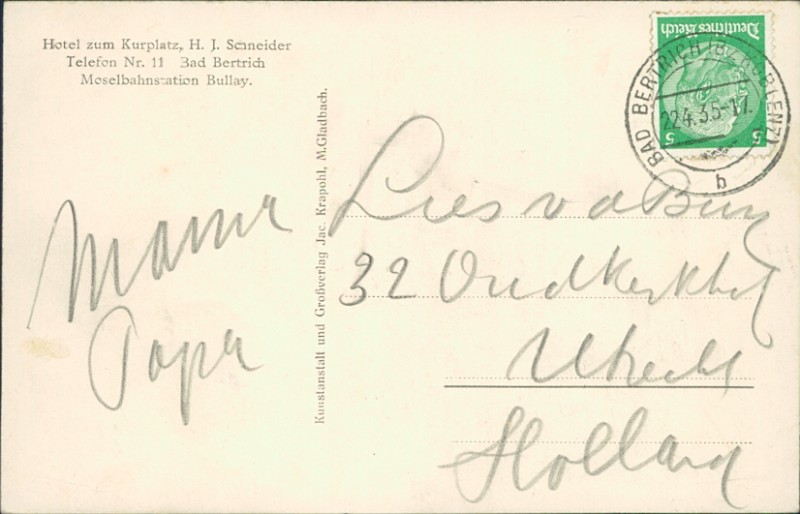 Hotel zum Kurplatz, H. J. Schneider
Telefon Nr. 11 Bad Bertrich
Moselbahnstation Bullay.
Mama
Papa
Kunstanstalt und Großverlag Jac. Krapohl, M.Gladbach.
Deutsches Reich
5 5
BAD BERTRICH
22.4.35-17
b
Lies v d Burg
32 Oudkerkhof
Utrecht
Holland